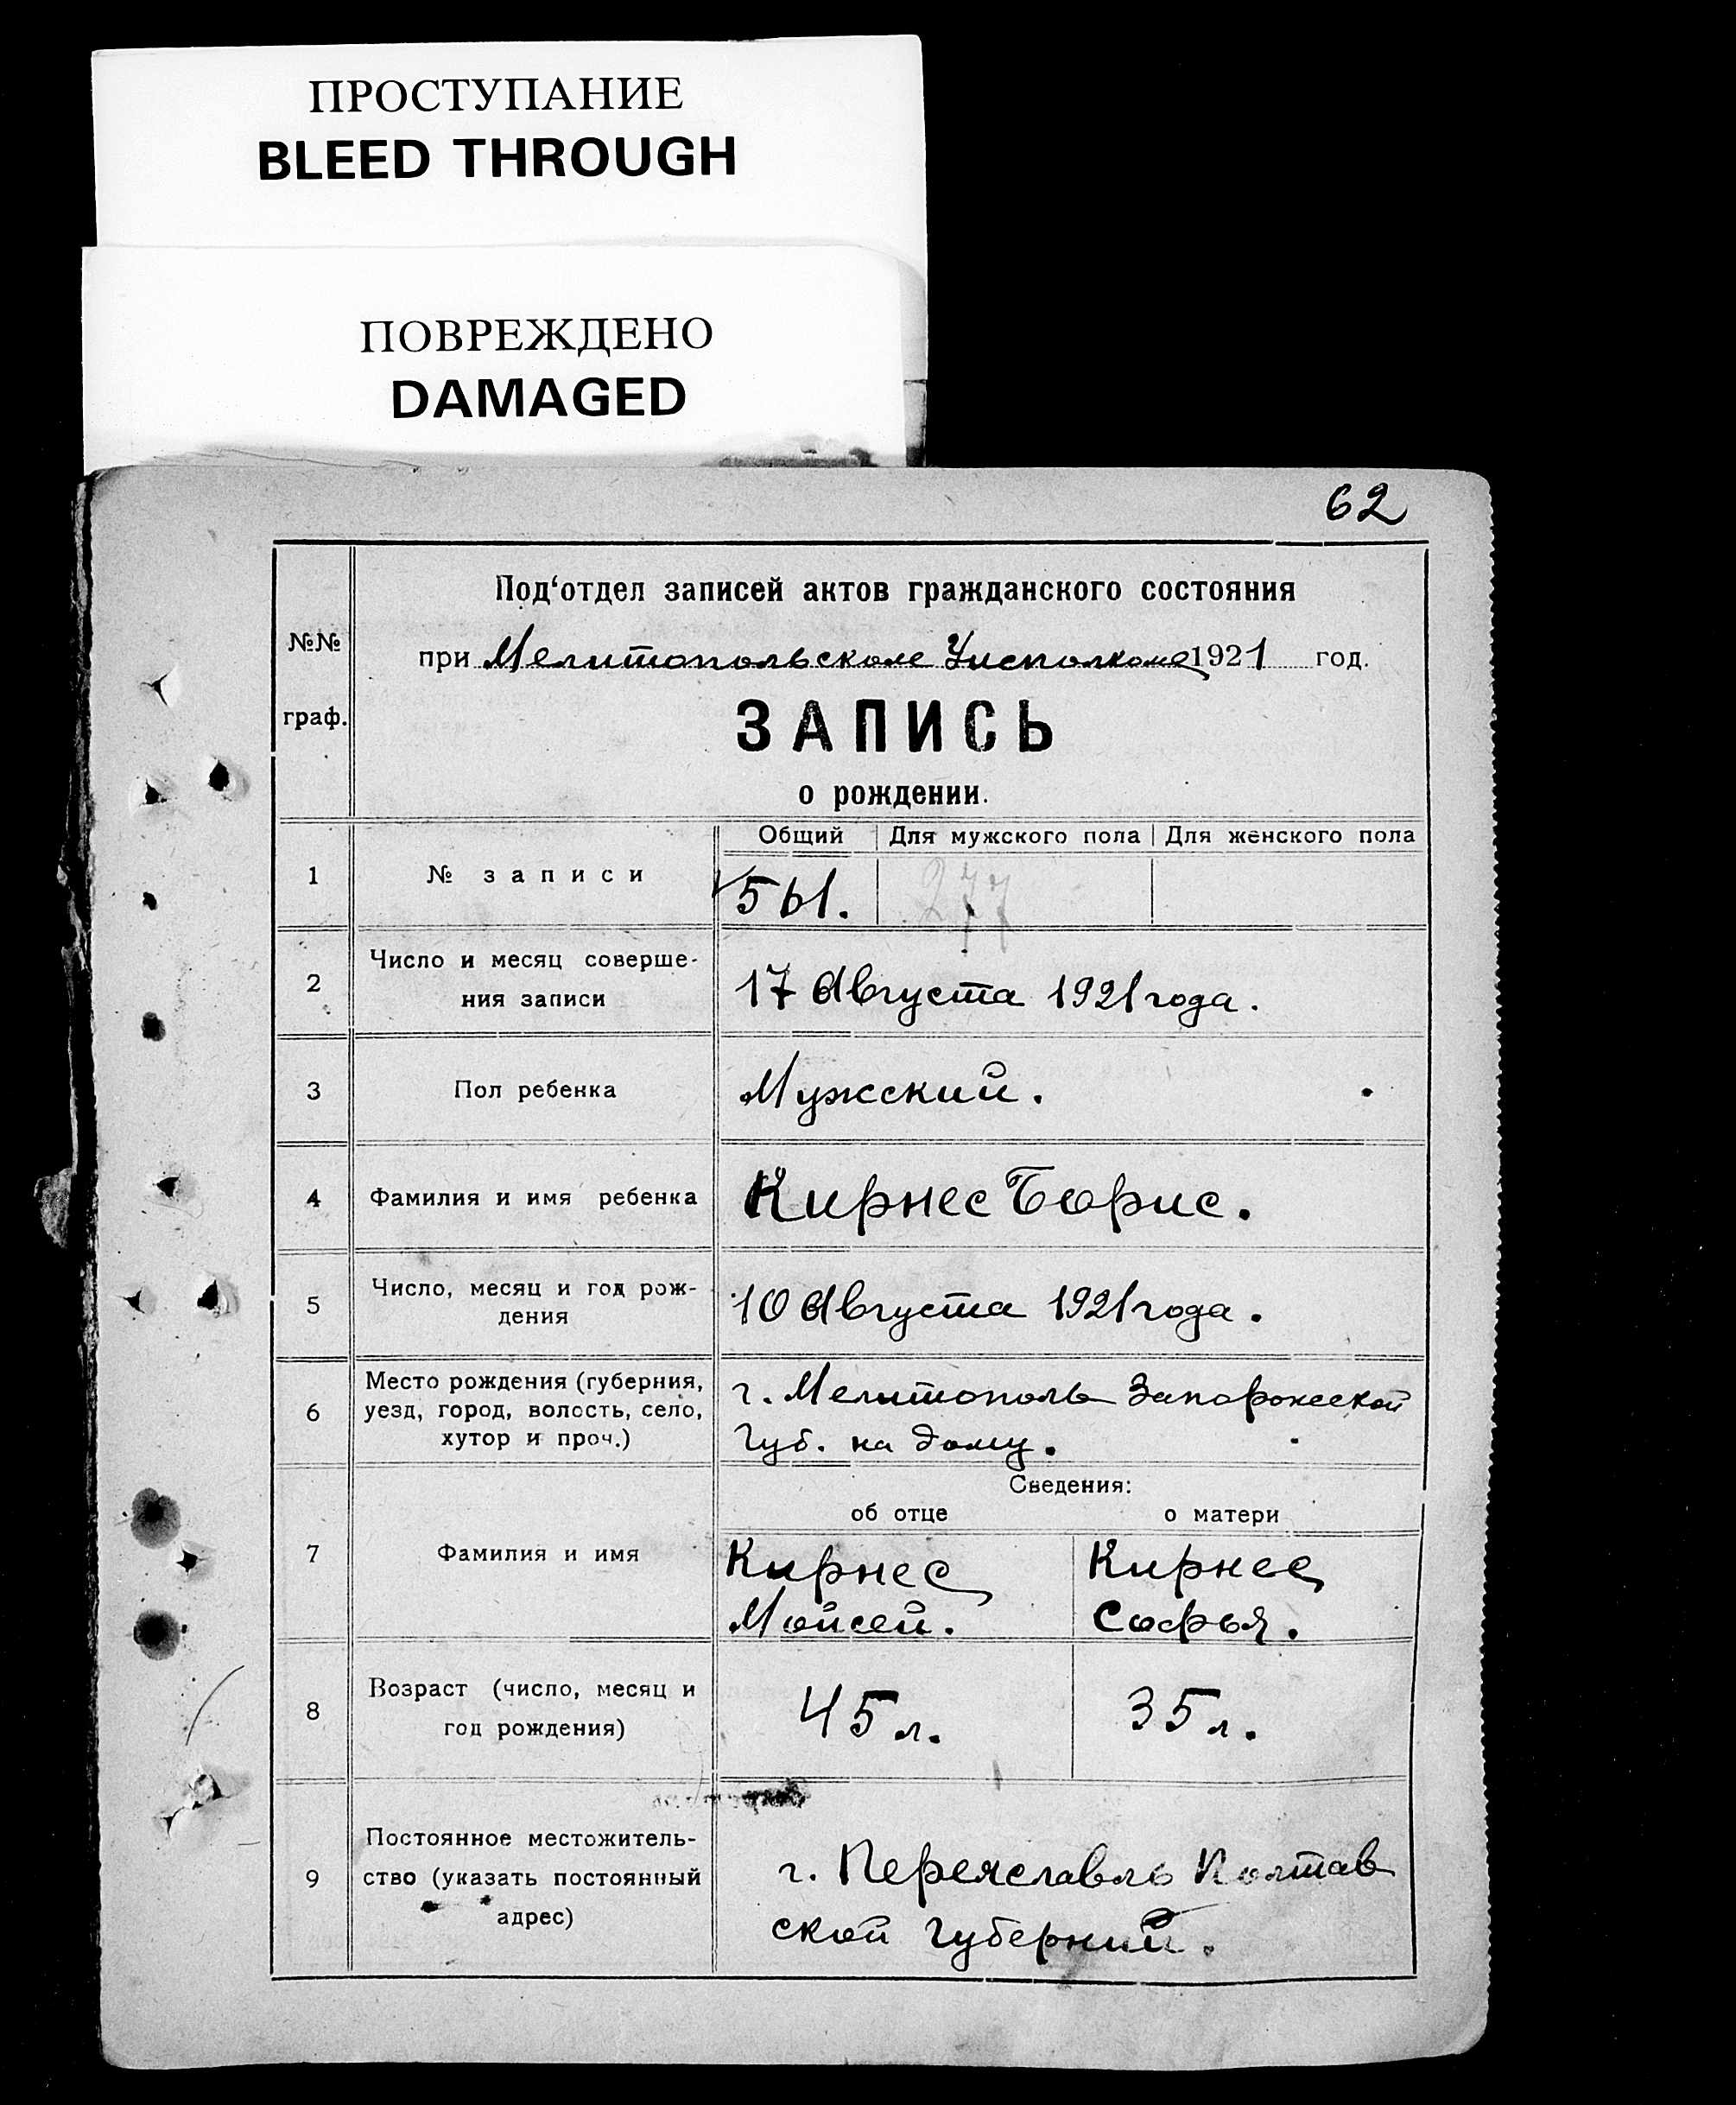 ПРОСТУПАНИЕ
BLEED THROUGH
ПОВРЕЖДЕНО
DAMAGED
62
№№ граф.
Под'отдел записей актов гражданского состояния
при Мелитопольском Уисполкоме 1921 год.
ЗАПИСЬ
о рождении.
Общий Для мужского пола Для женского пола
1 № записи 561. 277
2 Число и месяц соверше-
ния записи 17 Августа 1921 года.
3 Пол ребенка Мужский.
4 Фамилия и имя ребенка Кирнес Борис.
5 Число, месяц и год рож-
дения 10 Августа 1921 года.
6 Место рождения (губерния,
уезд, город, волость, село,
хутор и проч.)
г. Мелитополь Запорожской
Губ. на дому.
Сведения:
об отце о матери
7 Фамилия и имя
Кирнес Кирнес
Мойсей. Софья.
8 Возраст (число, месяц и
год рождения) 45 л. 35 л.
9 Постоянное местожитель-
ство (указать постоянный
адрес)
г. Переяславль Полтав
ской Губернии.